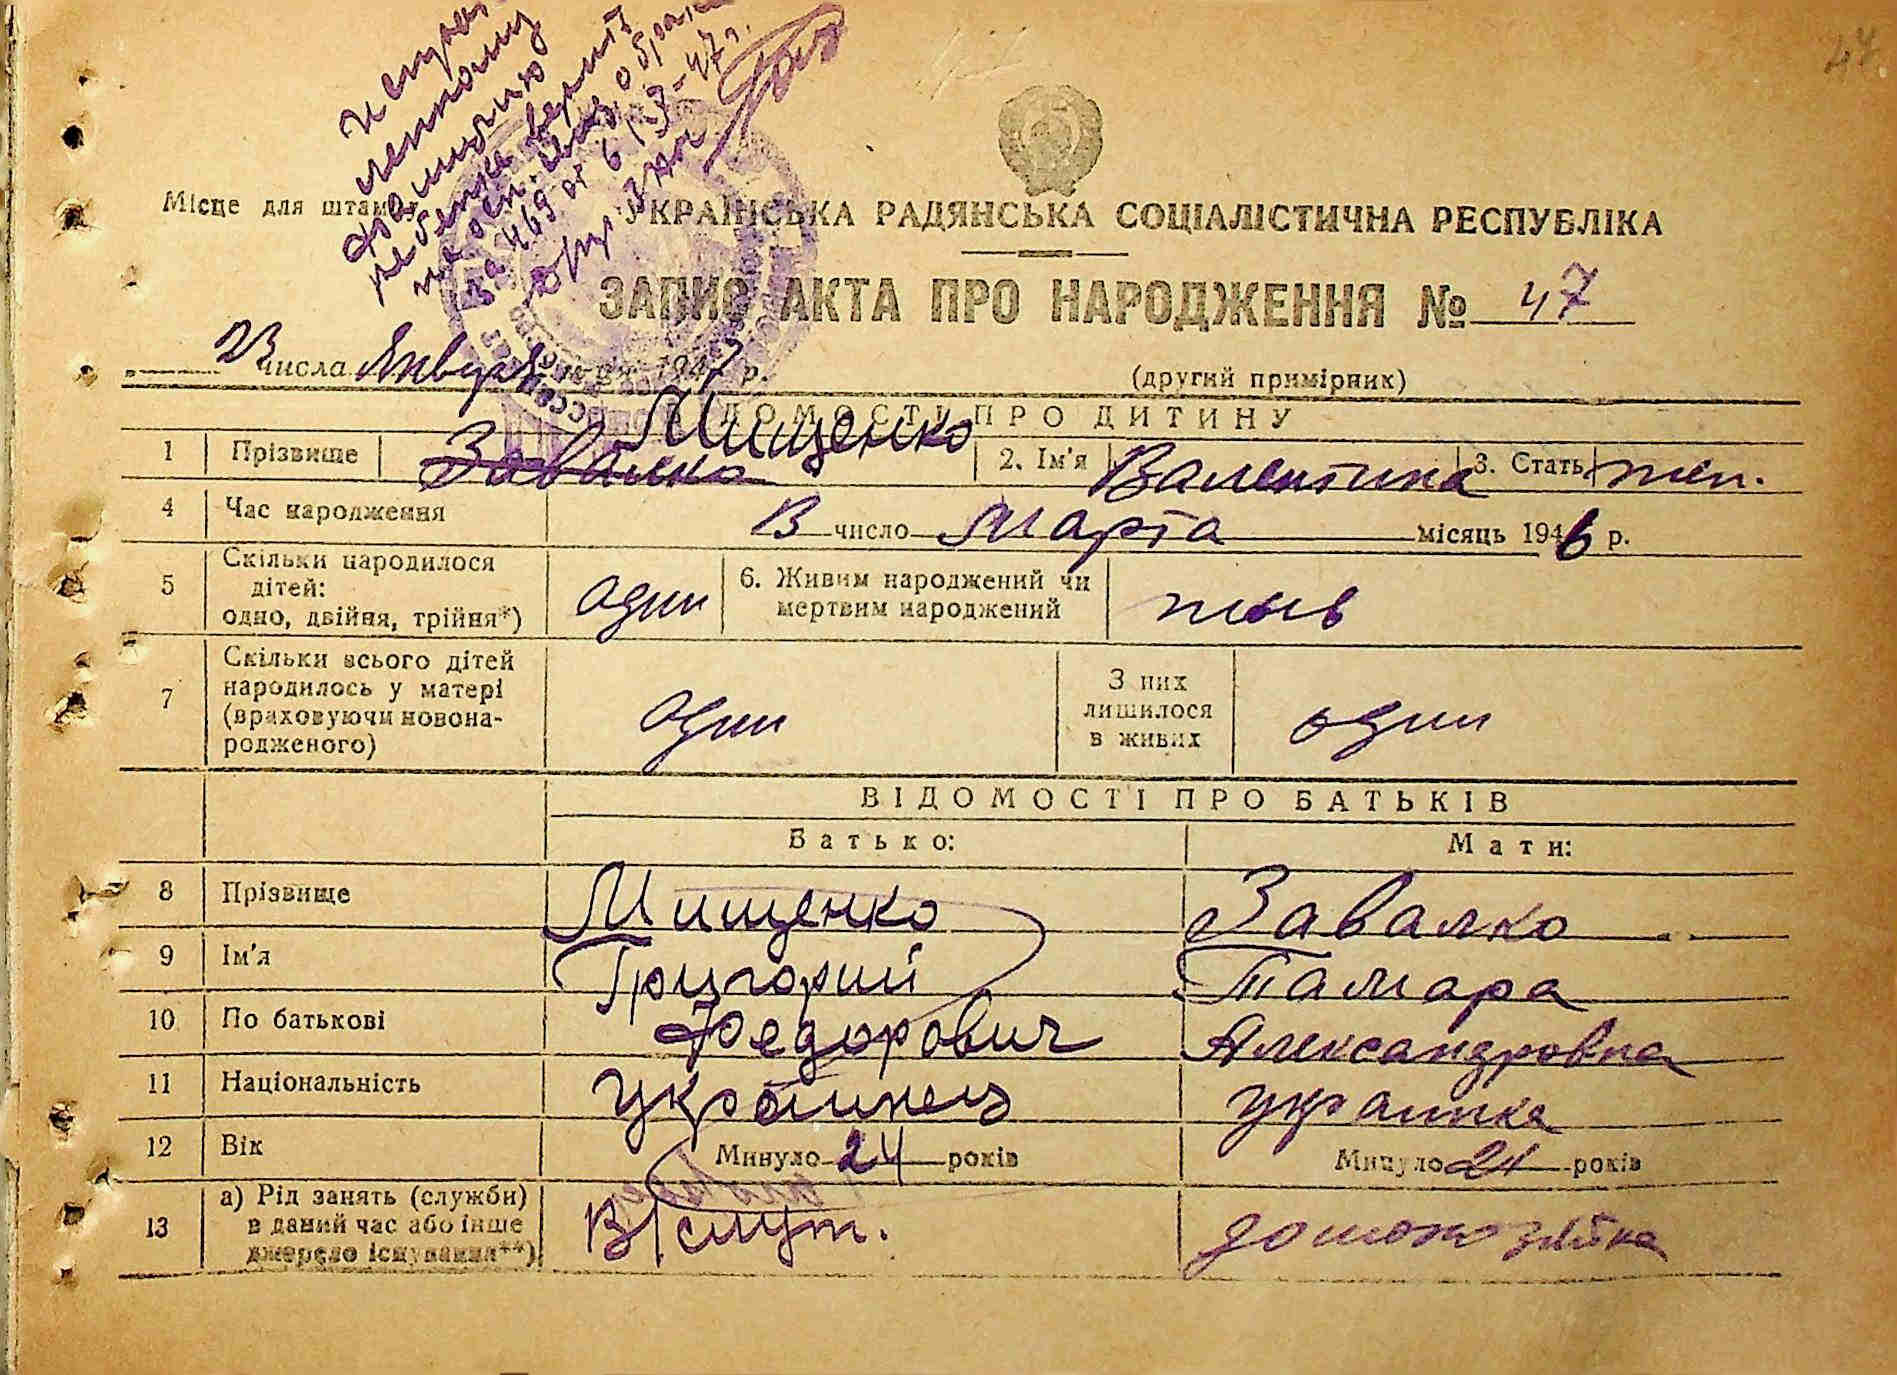 47
Исправ
ленному
фамилию
ребенка верить
на осн. свид. о браке
№ 469 от 6/IX-47 г.
Місце для штампу
УКРАЇНСЬКА РАДЯНСЬКА СОЦІАЛІСТИЧНА РЕСПУБЛІКА
ЗАПИС АКТА ПРО НАРОДЖЕННЯ № 47
23 числа Января м-ця 1947 р.
(другий примірник)
ВІДОМОСТІ ПРО ДИТИНУ
1 Прізвище Завалко Мищенко 2. Ім'я Валентина 3. Стать жен.
4 Час народження 13 число Марта місяць 1946 р.
5 Скільки народилося дітей: одно, двійня, трійня*) один 6. Живим народжений чи мертвим народжений жив
7 Скільки всього дітей народилось у матері (враховуючи новонародженого) один З них лишилося в живих один
ВІДОМОСТІ ПРО БАТЬКІВ
Батько: Мати:
8 Прізвище Мищенко Завалко
9 Ім'я Григорий Тамара
10 По батькові Федорович Александровна
11 Національність украинец украинка
12 Вік Минуло 24 років Минуло 21 років
13 а) Рід занять (служби) в даний час або інше джерело існування**) В/служ. домохозяйка